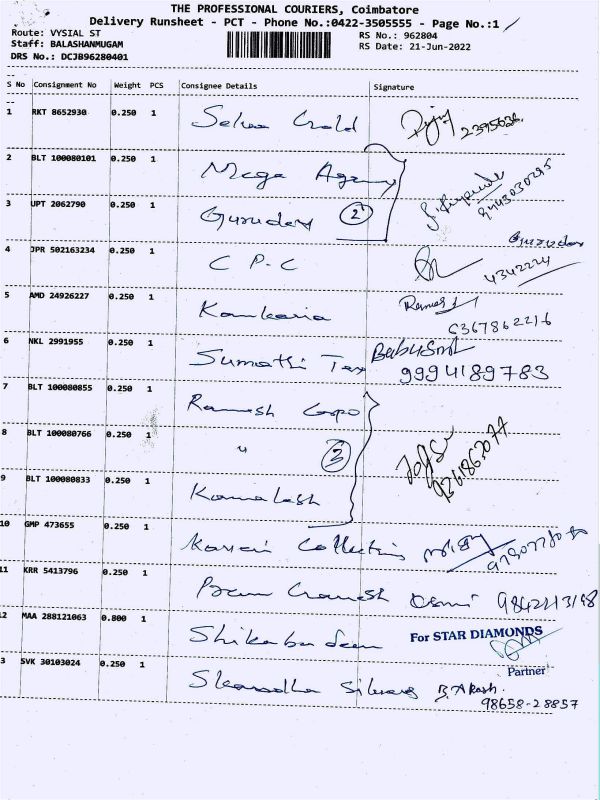 THE PROFESSIONAL COURIERS, Coimbatore
Delivery Runsheet - PCT - Phone No.:0422-3505555 - Page No.:1
Route: VYSIAL ST RS No.: 962804
Staff: BALASHANMUGAM RS Date: 21-Jun-2022
DRS No.: DCJB96280401
S No Consignment No Weight PCS Consignee Details Signature
1 RKT 8652930 0.250 1 2395636
2 BLT 100080101 0.250 1 Mega Agency
3 UPT 2062790 0.250 1 Gurudev 2 9443030295
Gurudev
4 JPR 502163234 0.250 1 C P.C 4342224
5 AMD 24926227 0.250 1 Kankaria Ramesh 6367862216
6 NKL 2991955 0.250 1 Sumathi Tex 9994189783
7 BLT 100080855 0.250 1 Ramesh
8 BLT 100080766 0.250 1 " 3
9 BLT 100080833 0.250 1 Kamalesh
10 GMP 473655 0.250 1 Collections
11 KRR 5413796 0.250 1
12 MAA 288121063 0.800 1 For STAR DIAMONDS
Partner
3 SVK 30103024 0.250 1 B. Akash.
98658-28857